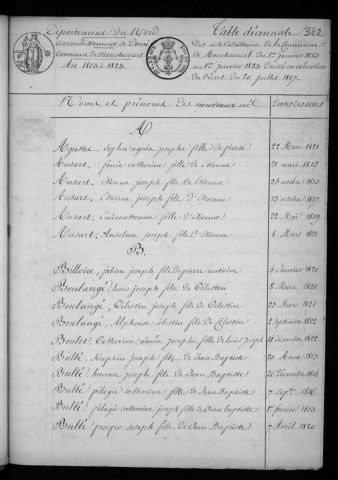 Département du Nord
arrondissement de Douai
Commune de
An 1813 à 1823.
Table décennale 382
Des actes de de la Commune
de Moncheaux Du 1er janvier 1813
au 1er janvier 1823. Dressée en exécution
du Décret du 20 juillet 1807.
Noms et prénoms des nouveaux nés Dates des actes
A
Sophie agnès josephe fille de pierre 22 Mars 1821
catherine fille de Etienne 21 mars 1815
Etienne joseph fils de Etienne 23 octobre 1813
joseph fils d'Etienne 13 octobre 1817
fille d'Etienne 22 Mai 1819
Anselme joseph fils d'Etienne 8 Mars 1821
B.
Billoire, fabien joseph fils de pierre antoine 5 Janvier 1820
Boulangé, louis joseph fils de Célestin 8 Mars 1820
Boulangé, Célestin joseph fils de Célestin 23 Mars 1821
Boulangé, Alphonse célestin fils de Célestin 2 Septembre 1822
Boulet, Catherine aimée josephe fille de louis joseph 18 décembre 1822
Bullé, Séraphine Joseph fils de Jean Baptiste 20 Aout 1813
Bullé, joseph fils de Jean Baptiste 26 Décembre 1814
Bullé pélagie catherine fille de Jean Baptiste 7 sepbre 1816
Bullé pélagie catherine fille de Jean baptiste 1er février 1813
Bullé prosper joseph fils de Jean Baptiste 7 Avril 1820